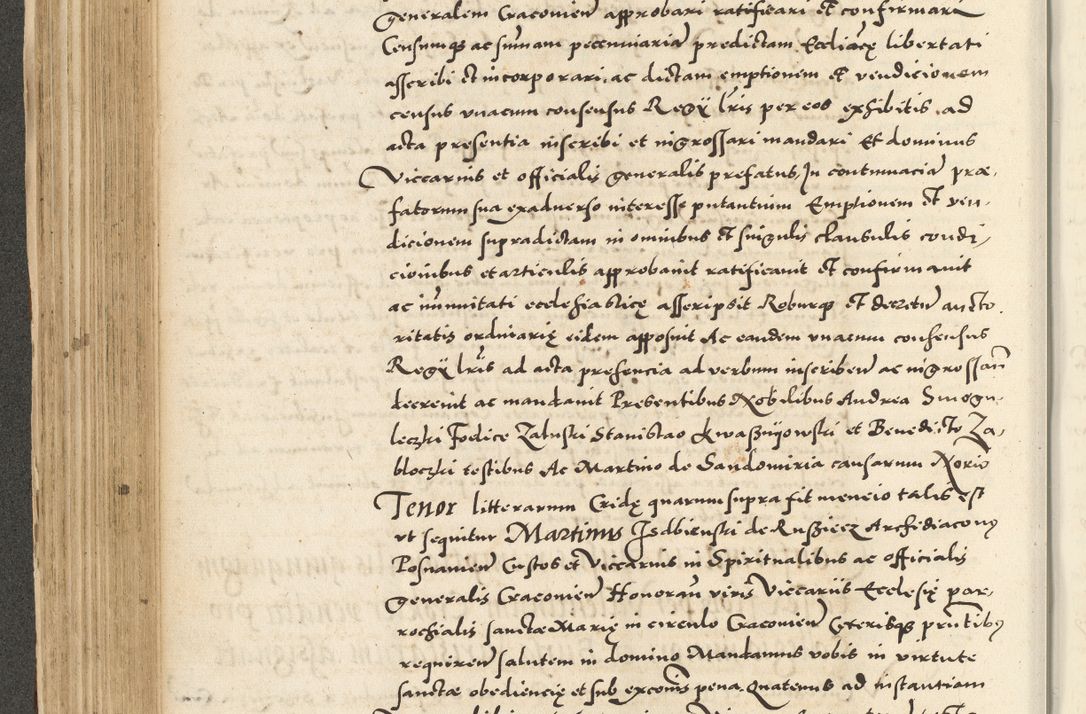 generalem Cracovien approbari ratificari et confirmari
Censumque ac sum̄am pecuniariā predictam Ecclīasticę libertati
asscribi et incorporari, ac dictam emptionem et vendicionem
census vnacum consensus Regÿ lr̄is per eos exhibitis ad
acta presentia inscribi et ingrossari mandari Et dominus
Viccarius et officialis generalis prefatus, In contumaciā præ-
fatorum sua exadverso interesse putantium Emptionem et ven-
dicionem supradictam in omnibus et singulis clausulis condi-
cionibus et articulis approbauit ratificauit et confirmauit
ac im̄unitati ecclesiasticę asscripsit Roburque et decretū aucto-
ritatis ordinarię eidem apposuit Ac eandem vnacum consensus
Regÿ lr̄is ad acta presencia ad verbum inscribeñ ac ingrossañ
decreuit ac mandauit Presentibus Nobilibus Andrea Smogu-
leczki Foelice Zaluski Stanislao Kwaszÿowski et Benedicto Za-
bloczki testibus Ac Martino de Sandomiria causarum Norio
Tenor litterarum Cridę quarum supra fit mencio talis est
vt sequitur Martinus Isdbienski de Ruszieez Archidiaconus
Posnanien Custos et Viccarius in Spiritualibus ac officialis
generalis Cracovien Honorañ viris Viccariis Ecclesię par-
rochialis sanctæ Marię in circulo Cracovien Cęterisque pr̄ntibus
requireñ salutem in domino Mandamus vobis in virtute
sanctæ obediencię et sub excōis pena, Quatenus ad instantiam